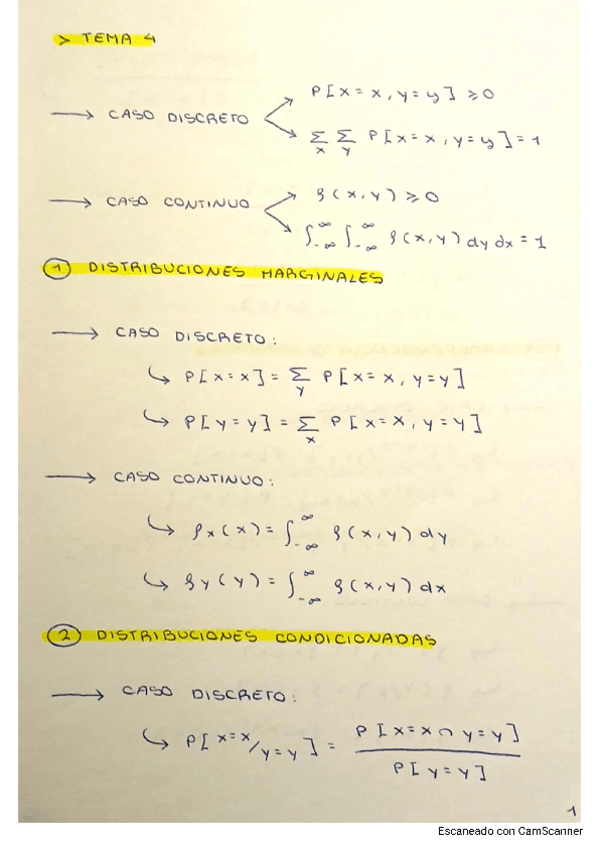 > TEMA 4
→ CASO DISCRETO
P[X=x, Y=y] ≥ 0
∑x ∑y P[X=x, Y=y] = 1
→ CASO CONTINUO
f(x,y) ≥ 0
∫_{-∞}^{∞} ∫_{-∞}^{∞} f(x,y) dy dx = 1
① DISTRIBUCIONES MARGINALES
→ CASO DISCRETO:
↳ P[X=x] = ∑y P[X=x, Y=y]
↳ P[Y=y] = ∑x P[X=x, Y=y]
→ CASO CONTINUO:
↳ fx(x) = ∫_{-∞}^{∞} f(x,y) dy
↳ fy(y) = ∫_{-∞}^{∞} f(x,y) dx
② DISTRIBUCIONES CONDICIONADAS
→ CASO DISCRETO:
↳ P[X=x/Y=y] = P[X=x ∩ Y=y] / P[Y=y]
1
Escaneado con CamScanner